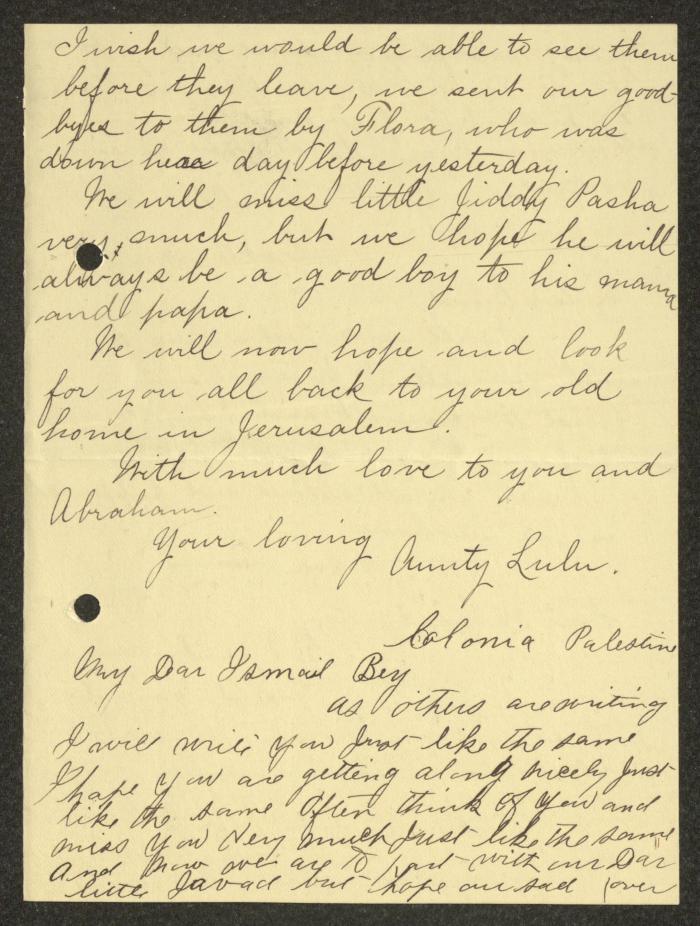 I wish we would be able to see them
before they leave, we sent our good-
byes to them by Flora, who was
down here day before yesterday.
We will miss little Jiddy Pasha
very much, but we hope he will
always be a good boy to his mama
and papa.
We will now hope and look
for you all back to your old
home in Jerusalem.
With much love to you and
Abraham.
Your loving
Aunty Lulu.
Colonia Palestine
My Dar Ismail Bey
as others are writing
I will write you Just like the same
I hope you are getting along nicely Just
like the same Often think of you and
miss you Very much Just like the same
And now we are to part with our Dar
little Javad but hope our sad (over